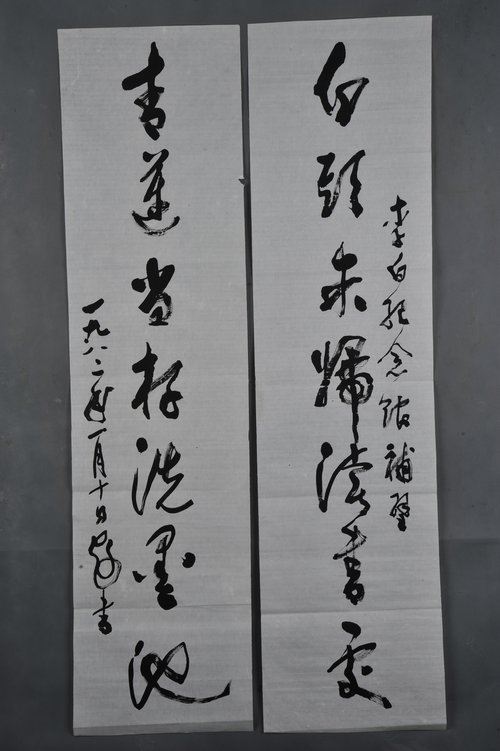 李白纪念馆補壁
白頭未歸读書處
青蓮当存洗墨池
一九八二年一月十日
書